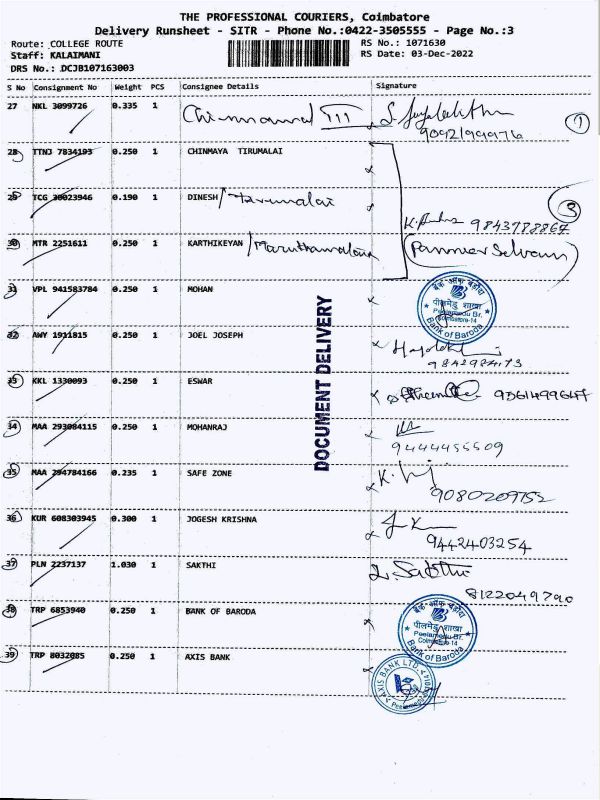 THE PROFESSIONAL COURIERS, Coimbatore
Delivery Runsheet - SITR - Phone No.:0422-3505555 - Page No.:3
Route: COLLEGE ROUTE RS No.: 1071630
Staff: KALAIMANI RS Date: 03-Dec-2022
DRS No.: DCJB107163003
S No Consignment No Weight PCS Consignee Details Signature
27 NKL 3099726 0.335 1 III
1
28 TTNJ 7834193 0.250 1 CHINMAYA TIRUMALAI
29 TCG 30023946 0.190 1 DINESH / Tirumalai 9843788867
3
30 MTR 2251611 0.250 1 KARTHIKEYAN / Panneer Selvam
31 VPL 941583784 0.250 1 MOHAN
बैंक ऑफ़ बड़ौदा
पीलमेडु शाखा
Peelamedu Br.
Coimbatore-14
Bank of Baroda
32 AWY 1911815 0.250 1 JOEL JOSEPH
33 KKL 1330093 0.250 1 ESWAR
34 MAA 293084115 0.250 1 MOHANRAJ
9444455509
35 MAA 294784166 0.235 1 SAFE ZONE
9080209752
36 KUR 608303945 0.300 1 JOGESH KRISHNA
9442403254
37 PLN 2237137 1.030 1 SAKTHI Sakthi
8122049790
38 TRP 6853940 0.250 1 BANK OF BARODA
बैंक ऑफ़ बड़ौदा
पीलमेडु शाखा
Peelamedu Br.
Coimbatore-14
Bank of Baroda
39 TRP 8032085 0.250 1 AXIS BANK
AXIS BANK LTD.
DOCUMENT DELIVERY